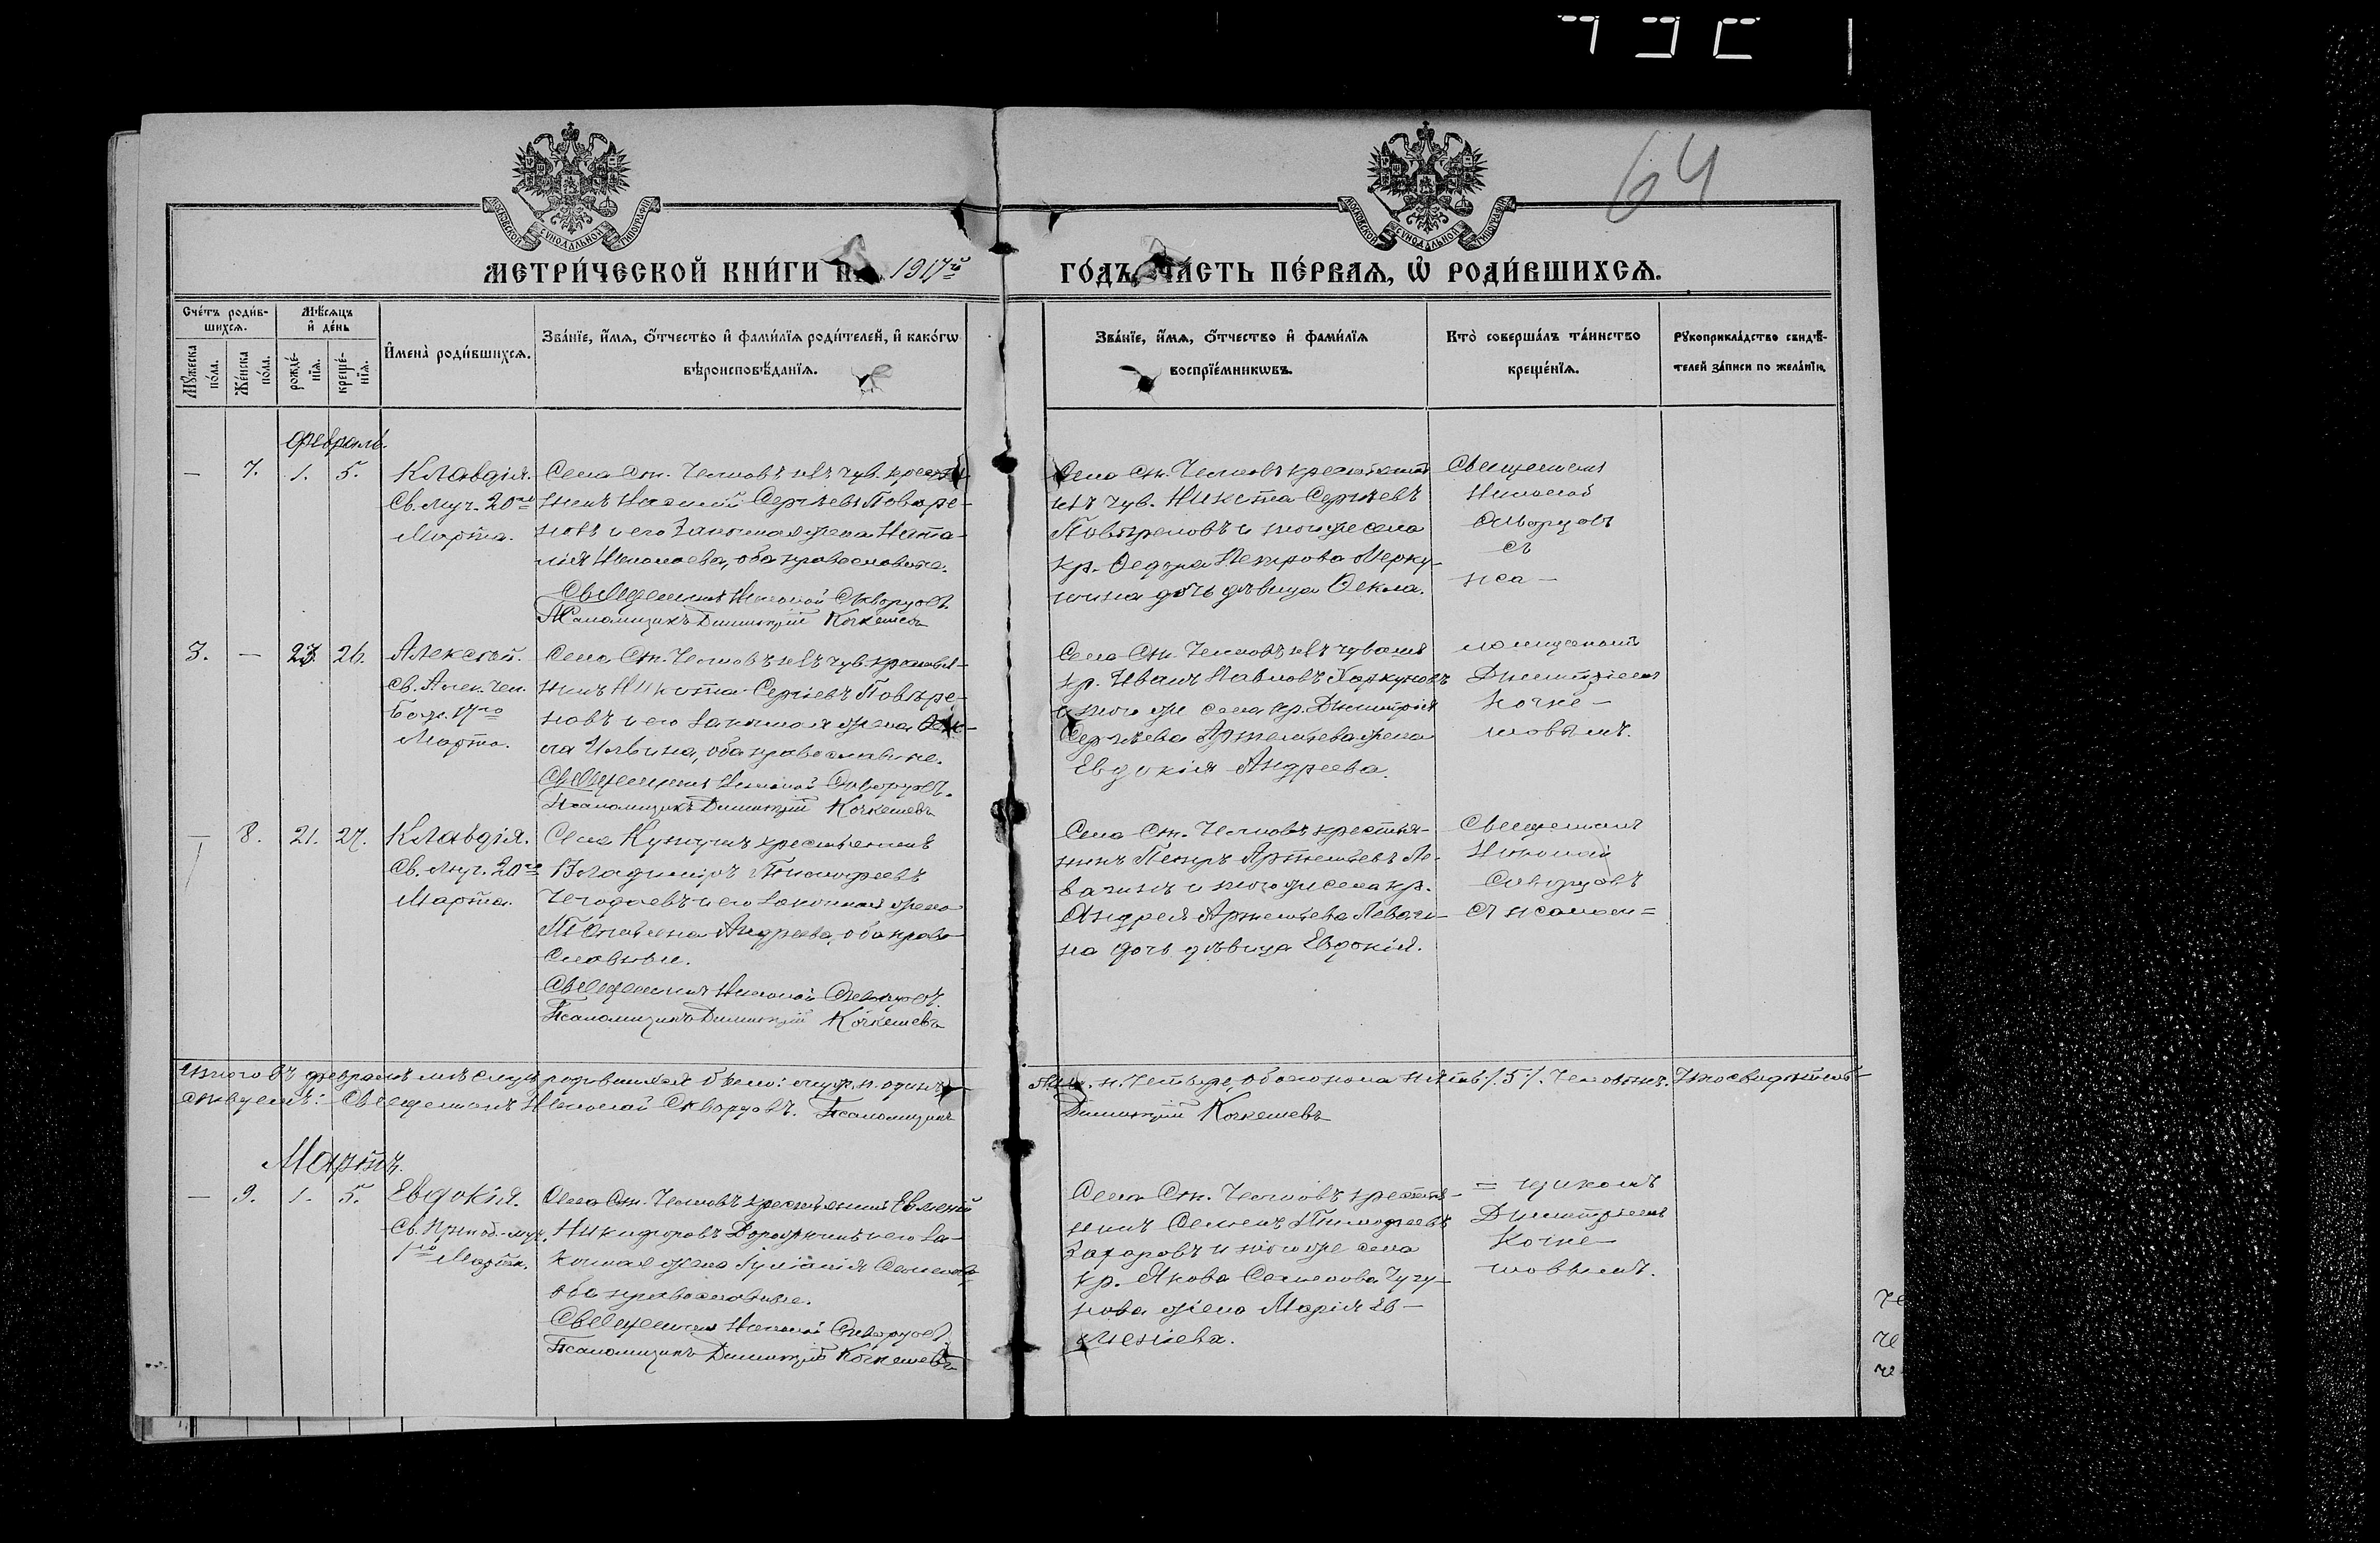 64
МОСКОВСКОЙ СѴНОДАЛЬНОЙ ТИПОГРАФІИ
МОСКОВСКОЙ СѴНОДАЛЬНОЙ ТИПОГРАФІИ
МЕТРИ́ЧЕСКОЙ КНИ́ГИ 1917й ГО́ДЪ, ЧА́СТЬ ПЕ́РВАѦ, Ѡ҆ РОДИ́ВШИХСѦ.
Сче́тъ роди́в-
шихсѧ.
Мꙋ́жеска по́ла.
Же́нска по́ла.
Мѣ́сѧцъ и҆ де́нь
рожде́-нїѧ.
креще́-нїѧ.
И҆мена̀ роди́вшихсѧ.
Зва́нїе, и҆́мѧ, ѻ҆́тчество и҆ фами́лїѧ роди́телей, и҆ како́гѡ
вѣроисповѣ́данїѧ.
Зва́нїе, и҆́мѧ, ѻ҆́тчество и҆ фами́лїѧ
воспрїе́мникѡвъ.
Кто̀ соверша́лъ та́инство
креще́нїѧ.
Рꙋкоприкла́дство свидѣ́-
телей за́писи по жела́нїю.
Февраль.
— 7. 1. 5. Клавдія.
Св. муч. 20го
Марта.
Села Ст. чув. крестья
нинъ Василій Сергѣевъ Повѣре-
новъ и его законная жена Ната-
лія Николаева, оба православные.
Священникъ Николай Скворцовъ
Псаломщикъ Димитрій Кочкешевъ
Села Ст. крестьянинъ
изъ чув. Никита Сергѣевъ
Повѣреновъ и того же села
кр. Ѳедора Петрова Мерку-
шина дочь дѣвица Ѳекла.
Священникъ
Николай
Скворцовъ
съ
пса-
3. — 23. 26. Алексѣй.
Св. Алек. Чел.
Бож. 17го
Марта.
Села Ст. изъ чув. крестья-
нинъ Никита Сергѣевъ Повѣре-
новъ и его законная жена Ѳек-
ла Ильина, оба православные.
Священникъ Николай Скворцовъ.
Псаломщикъ Димитрій Кочкешевъ
Села Ст. изъ чувашъ
кр. Иванъ Павловъ
и того же села кр. Димитрія
Сергѣева Артемьева жена
Евдокія Андреева.
ломщикомъ
Димитріемъ
Кочке-
шовымъ.
— 8. 21. 27. Клавдія.
Св. муч. 20го
Марта.
Села крестьянинъ
Владиміръ Тимофеевъ
Чегодаевъ и его законная жена
Татьяна Андреева, оба право-
славные.
Священникъ Николай Скворцовъ.
Псаломщикъ Димитрій Кочкешевъ
Села Ст. крестья-
нинъ Петръ Артемьевъ Ле-
вагинъ и того же села кр.
Андрея Артемьева Леваги-
на дочь дѣвица Евдокія.
Священникъ
Николай
Скворцовъ
съ псалом=
Итого въ февралѣ мѣсяцѣ родившихся было: муж. п. одинъ,
жен. п. четыре, обоего пола пять /5/. человѣкъ. Что свидѣтель-
ствуемъ: Священникъ Николай Скворцовъ. Псаломщикъ
Димитрій Кочкешевъ
Мартъ.
— 9. 1. 5. Евдокія.
Св. Препод.-муч.
1го Марта.
Села Ст. крестьянинъ Евменій
Никифоровъ и его за-
конная жена Гуліанія Семенова
оба православные.
Священникъ Николай Скворцовъ
Псаломщикъ Димитрій Кочкешевъ
Села Ст. крестья-
нинъ Семенъ Тимофеевъ
Захаровъ и того же села
кр. Якова Семенова Чугу-
нова жена Марія Ев-
меніева.
= щикомъ
Димитріемъ
Кочке-
шовымъ.